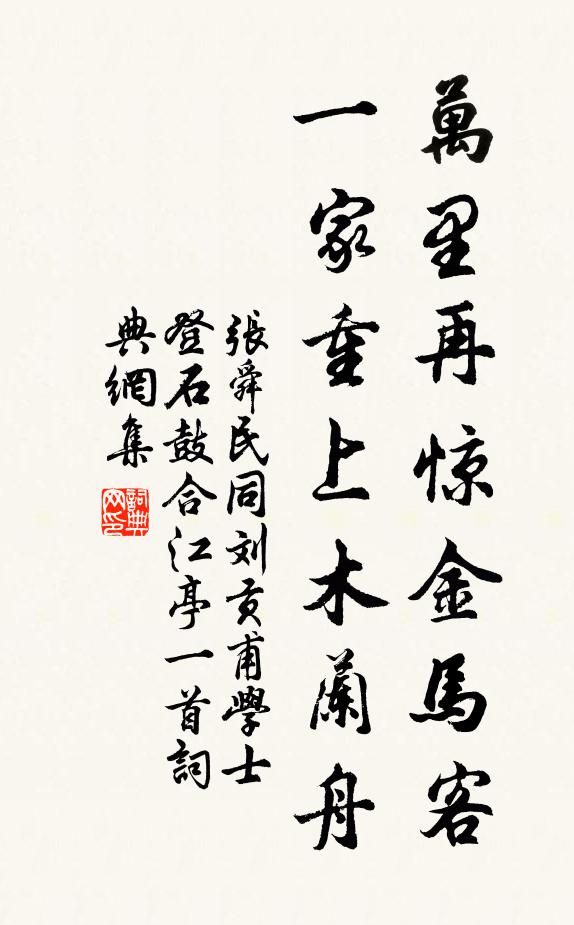 萬里再惊金馬客
一家重上木蘭舟
張舜民同刘贡甫學士
登石鼓合江亭一首詞
典網集
詞典网印